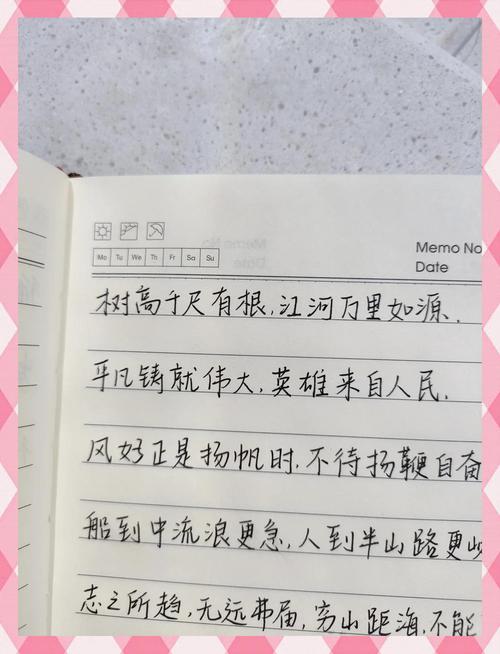 Memo No
Mo Tu We Th Fr Sa Su
Date
树高千尺有根,江河万里如源.
平凡铸就伟大,英雄来自人民.
风好正是扬帆时,不待扬鞭自奋
船到中流浪更急,人到半山路更
志之所趋,无远弗届,穷山距海,不能